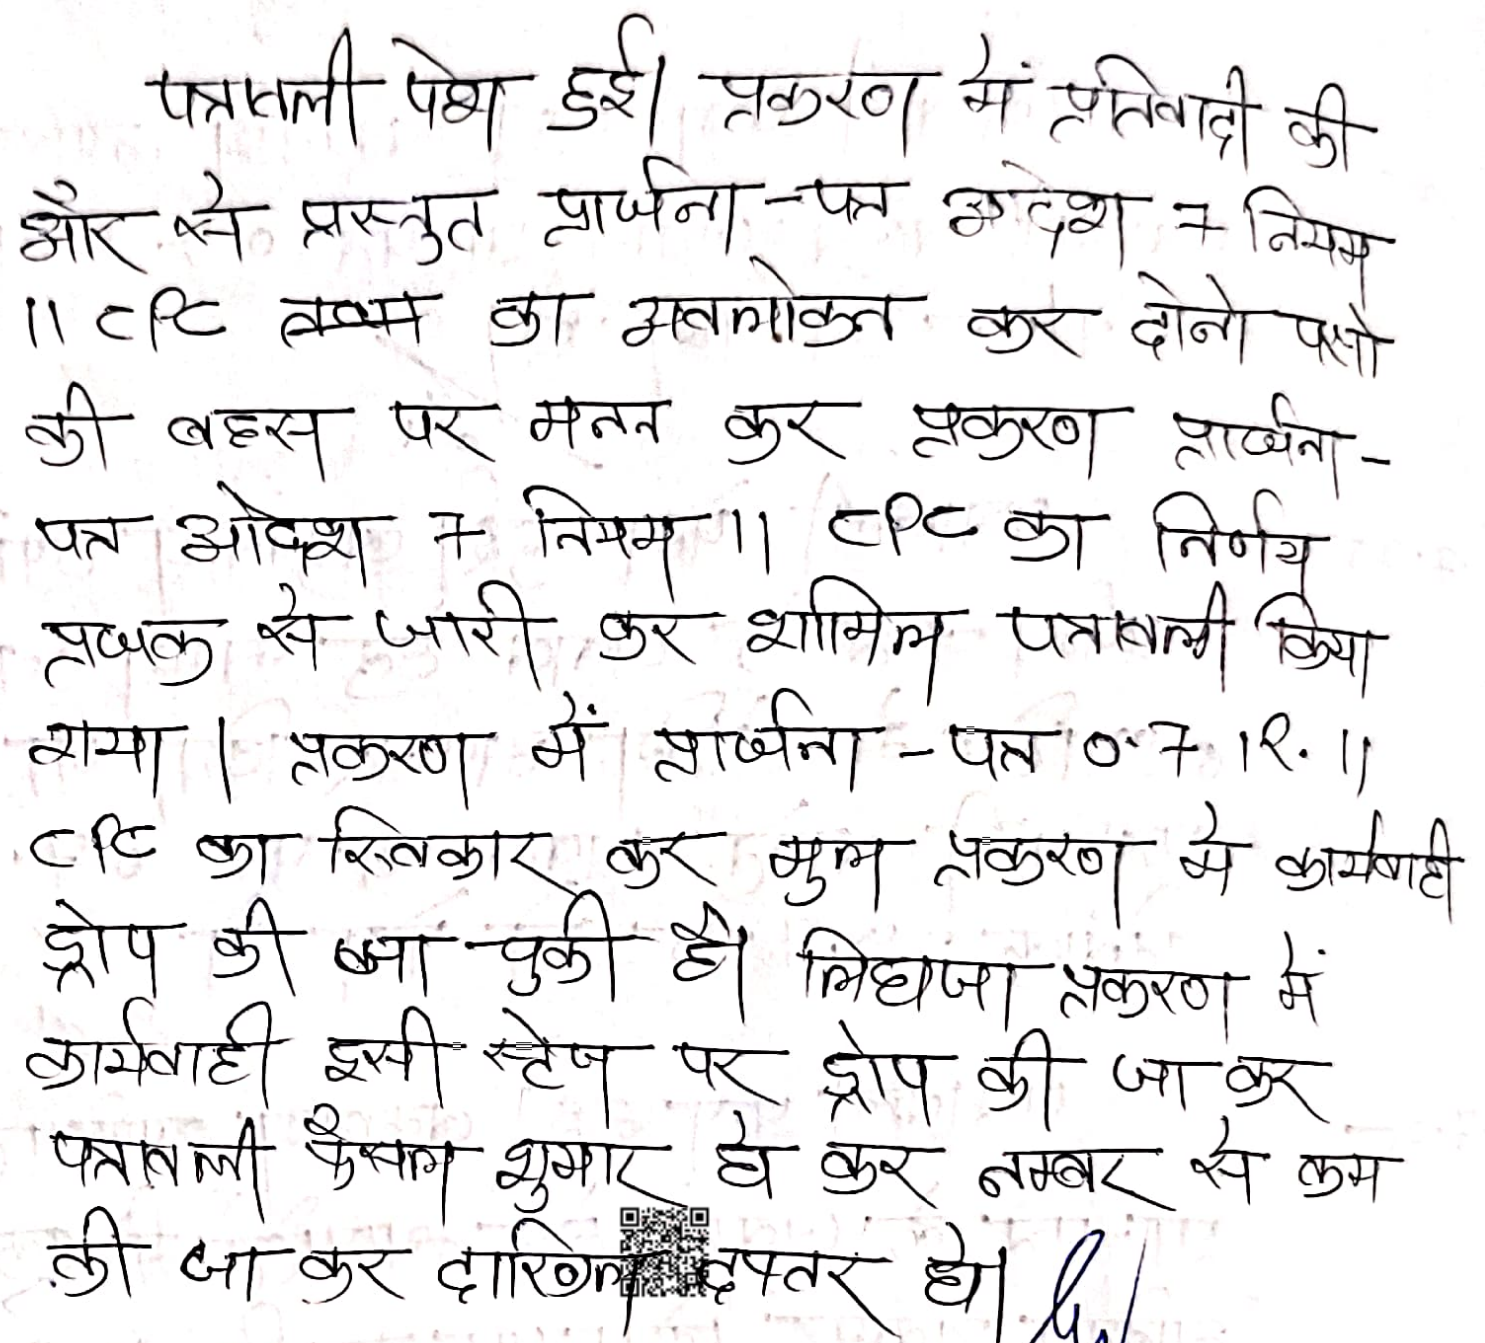 पत्रावली पेश हुई। प्रकरण में प्रतिवादी की
और से प्रस्तुत प्रार्थना-पत्र आदेश 7 नियम
11 CPC का अवलोकन कर दोनो पक्षो
की बहस पर मनन कर प्रकरण प्रार्थना-
पत्र आदेश 7 नियम 11 CPC का निर्णय
प्रथक से जारी कर शामिल पत्रावली किया
गया। प्रकरण में प्रार्थना-पत्र 0.7 R. 11
CPC का स्विकार कर मुल प्रकरण मे कार्यवाही
ड्रोप की जा चुकी है। लिहाजा प्रकरण में
कार्यवाही इसी स्टेज पर ड्रोप की जा कर
पत्रावली फैसल शुमार हो कर नम्बर से कम
की जा कर दाखिल दफ्तर हो।